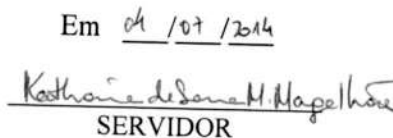 Em 04 /07 /2014
Katharine de Sena M. Magalhães
SERVIDOR